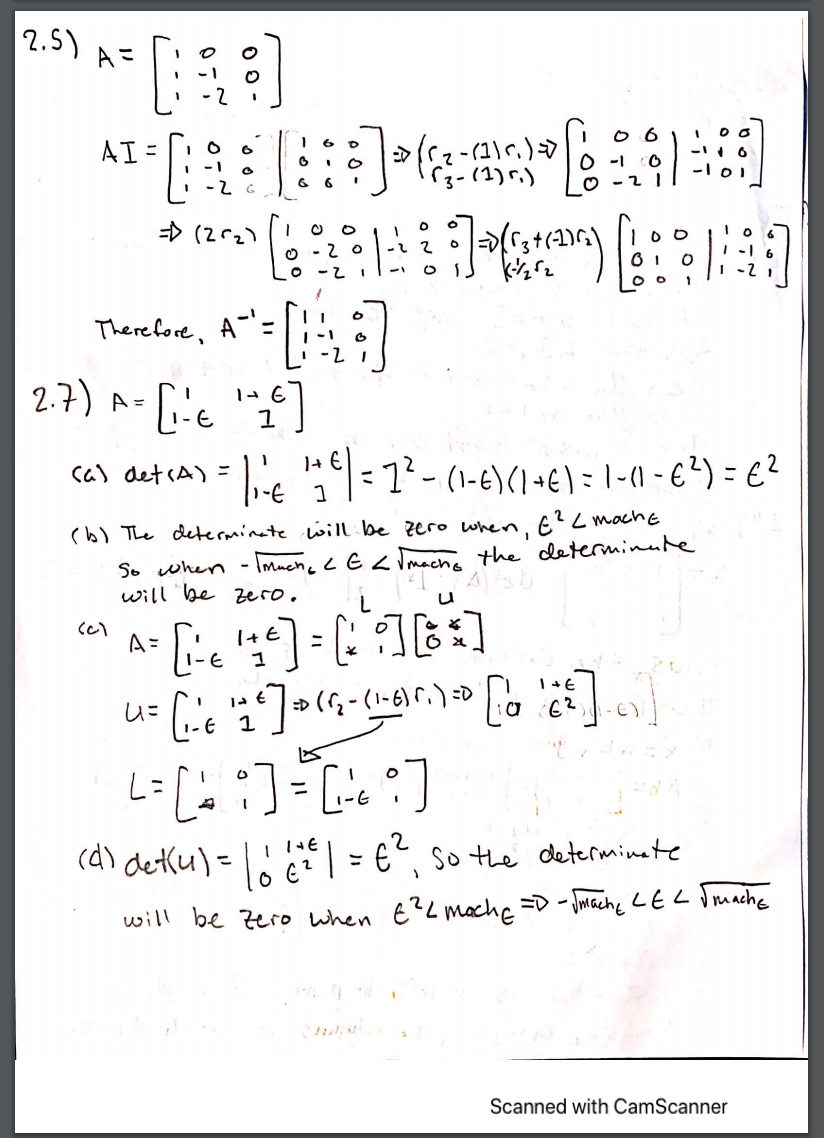 2.5) A = [1 0 0; 1 -1 0; 1 -2 1]
AI = [1 0 0; 1 -1 0; 1 -2 0 | 1 0 0; 0 1 0; 0 0 1] => (r2-(1)r1, r3-(1)r1) => [1 0 0; 0 -1 0; 0 -2 1 | 1 0 0; -1 1 0; -1 0 1]
=> (2r2) [1 0 0; 0 -2 0; 0 -2 1 | 1 0 0; -2 2 0; -1 0 1] => (r3+(-1)r2, -1/2 r2) [1 0 0; 0 1 0; 0 0 1 | 1 0 0; 1 -1 0; 1 -2 1]
Therefore, A⁻¹ = [1 1 0; 1 -1 0; 1 -2 1]
2.7) A = [1 1+ϵ; 1-ϵ 1]
(a) det(A) = |1 1+ϵ; 1-ϵ 1| = 1² - (1-ϵ)(1+ϵ) = 1-(1-ϵ²) = ϵ²
(b) The determinate will be zero when, ϵ² < machϵ
So when -√machϵ < ϵ < √machϵ the determinate
will be zero.
L U
(c) A = [1 1+ϵ; 1-ϵ 1] = [1 0; * 1][* *; 0 *]
U = [1 1+ϵ; 1-ϵ 1] => (r2-(1-ϵ)r1) => [1 1+ϵ; 0 ϵ²]
L = [1 0; * 1] = [1 0; 1-ϵ 1]
(d) det(U) = |1 1+ϵ; 0 ϵ²| = ϵ², so the determinate
will be zero when ϵ² < machϵ => -√machϵ < ϵ < √machϵ
Scanned with CamScanner